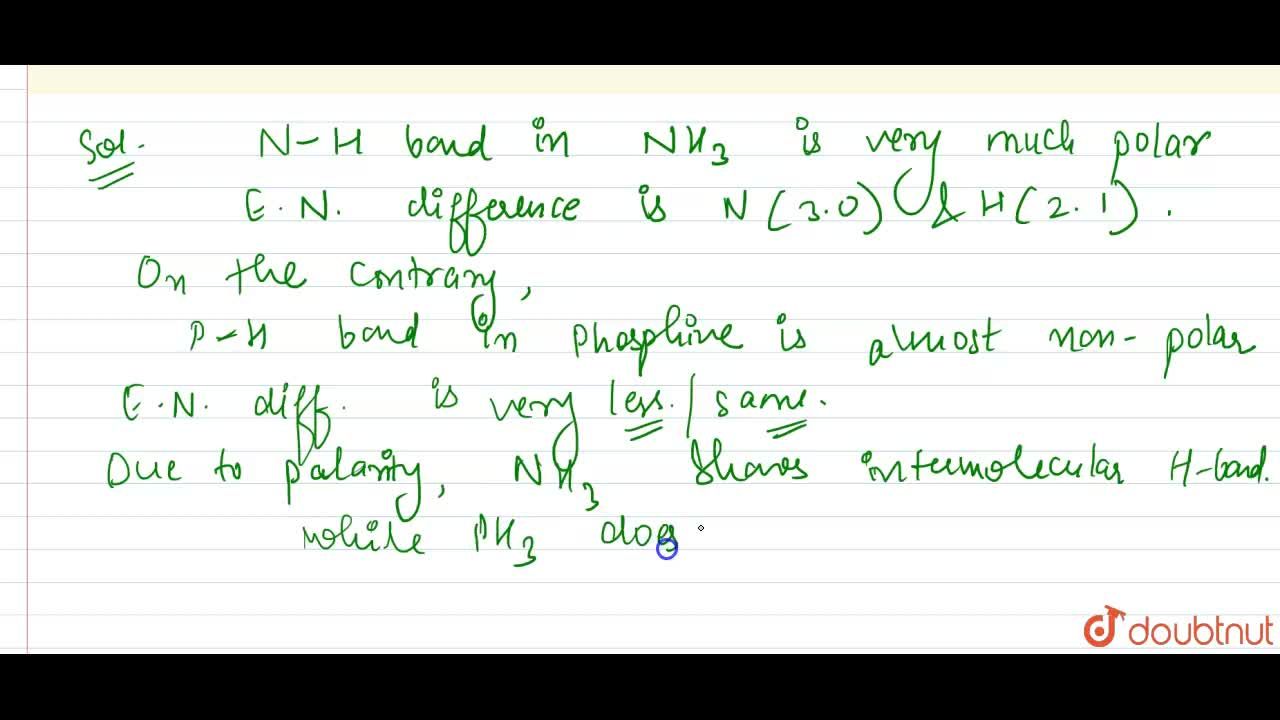 Sol. N-H bond in NH3 is very much polar
E.N. difference is N(3.0) & H(2.1).
On the contrary,
P-H bond in phosphine is almost non-polar
E.N. diff. is very less./same.
Due to polarity, NH3 shows intermolecular H-bond.
while PH3 does
doubtnut